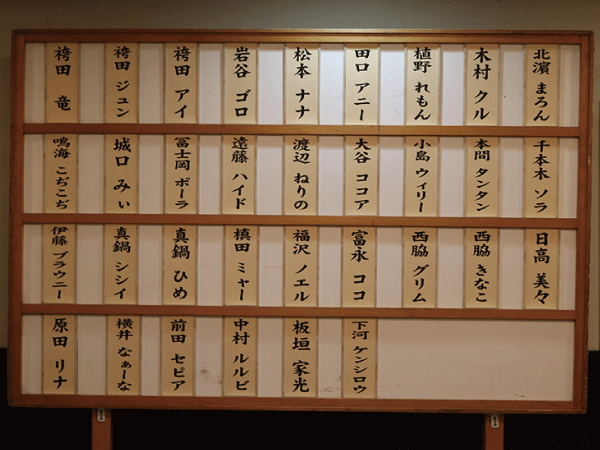 北濱 まろん
木村 クル
植野 れもん
田口 アニー
松本 ナナ
岩谷 ゴロ
袴田 アイ
袴田 ジュン
袴田 竜
千本木 ソラ
本間 タンタン
小島 ウィリー
大谷 ココア
渡辺 ねりの
遠藤 ハイド
冨士岡 ポーラ
城口 みぃ
鳴海 こぢこぢ
日高 美々
西脇 きなこ
西脇 グリム
富永 ココ
福沢 ノエル
槙田 ミャー
真鍋 ひめ
真鍋 シシイ
伊藤 ブラウニー
下河 ケンシロウ
板垣 家光
中村 ルルビ
前田 セピア
横井 なぁーな
原田 リナ